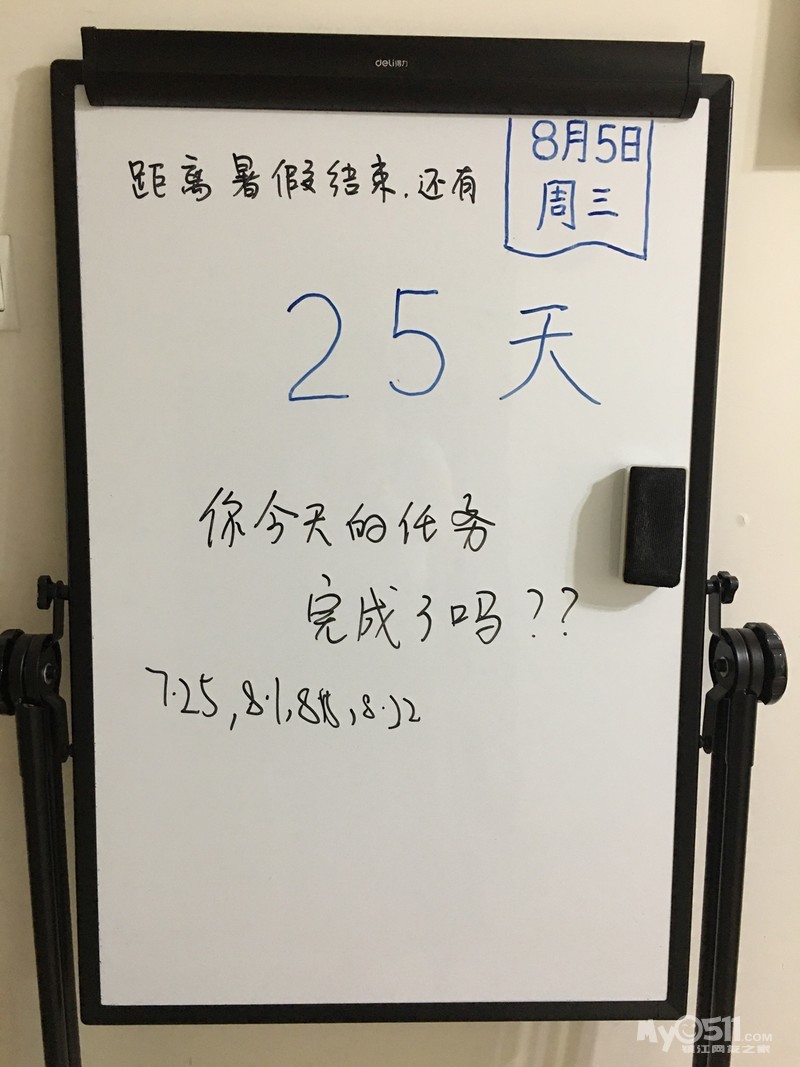 deli得力
8月5日
周三
距离暑假结束.还有
25天
你今天的任务
完成了吗??
7.25,8.1,8.8,8.22
My0511.COM
镇江网友之家